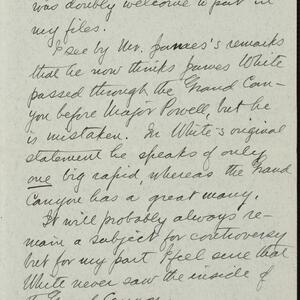 was doubly welcome to put in
my files.
I see by Mr. James's remarks
that he now thinks James White
passed through the Grand Can-
yon before Major Powell, but he
is mistaken. In White's original
statement he speaks of only
one big rapid, whereas the Grand
Canyon has a great many.
It will probably always re-
main a subject for controversy
but for my part I feel sure that
White never saw the inside of